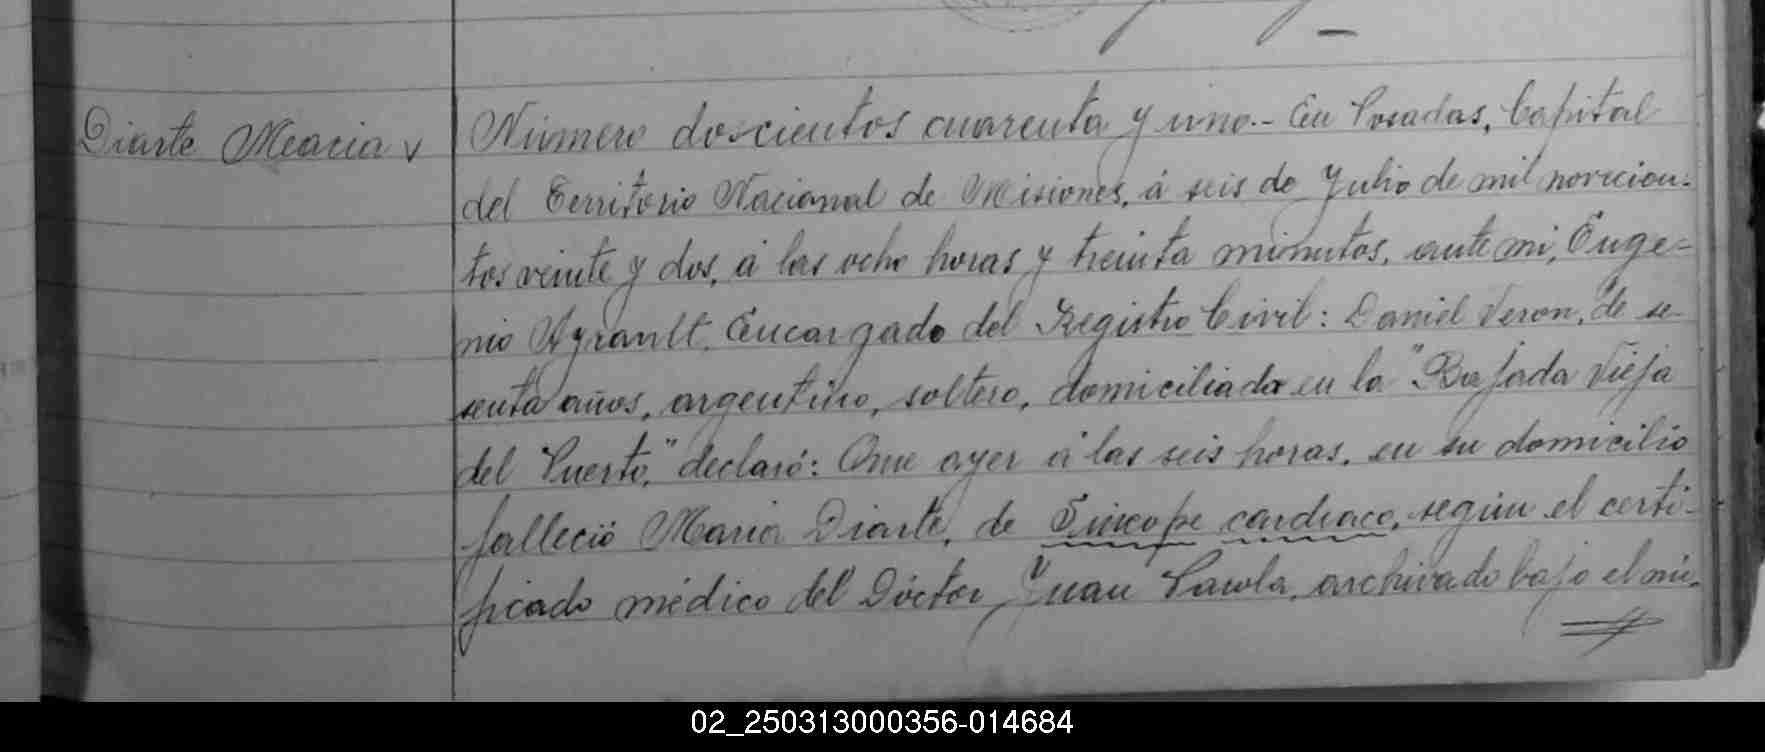 Diarte Maria v
Número doscientos cuarenta y uno.- En Posadas, Capital
del Territorio Nacional de Misiones, á seis de Julio de mil novecien-
tos veinte y dos, á las ocho horas y treinta minutos, ante mi, Euge-
nio Ayrault, Encargado del Registro Civil: Daniel Veron, de se-
senta años, argentino, soltero, domiciliado en la "Bajada Vieja
del Puerto," declaró: Que ayer á las seis horas, en su domicilio
falleció Maria Diarte, de Síncope cardiaco, según el certi-
ficado médico del Dóctor Juan Parola, archivado bajo el nú-
02_250313000356-014684